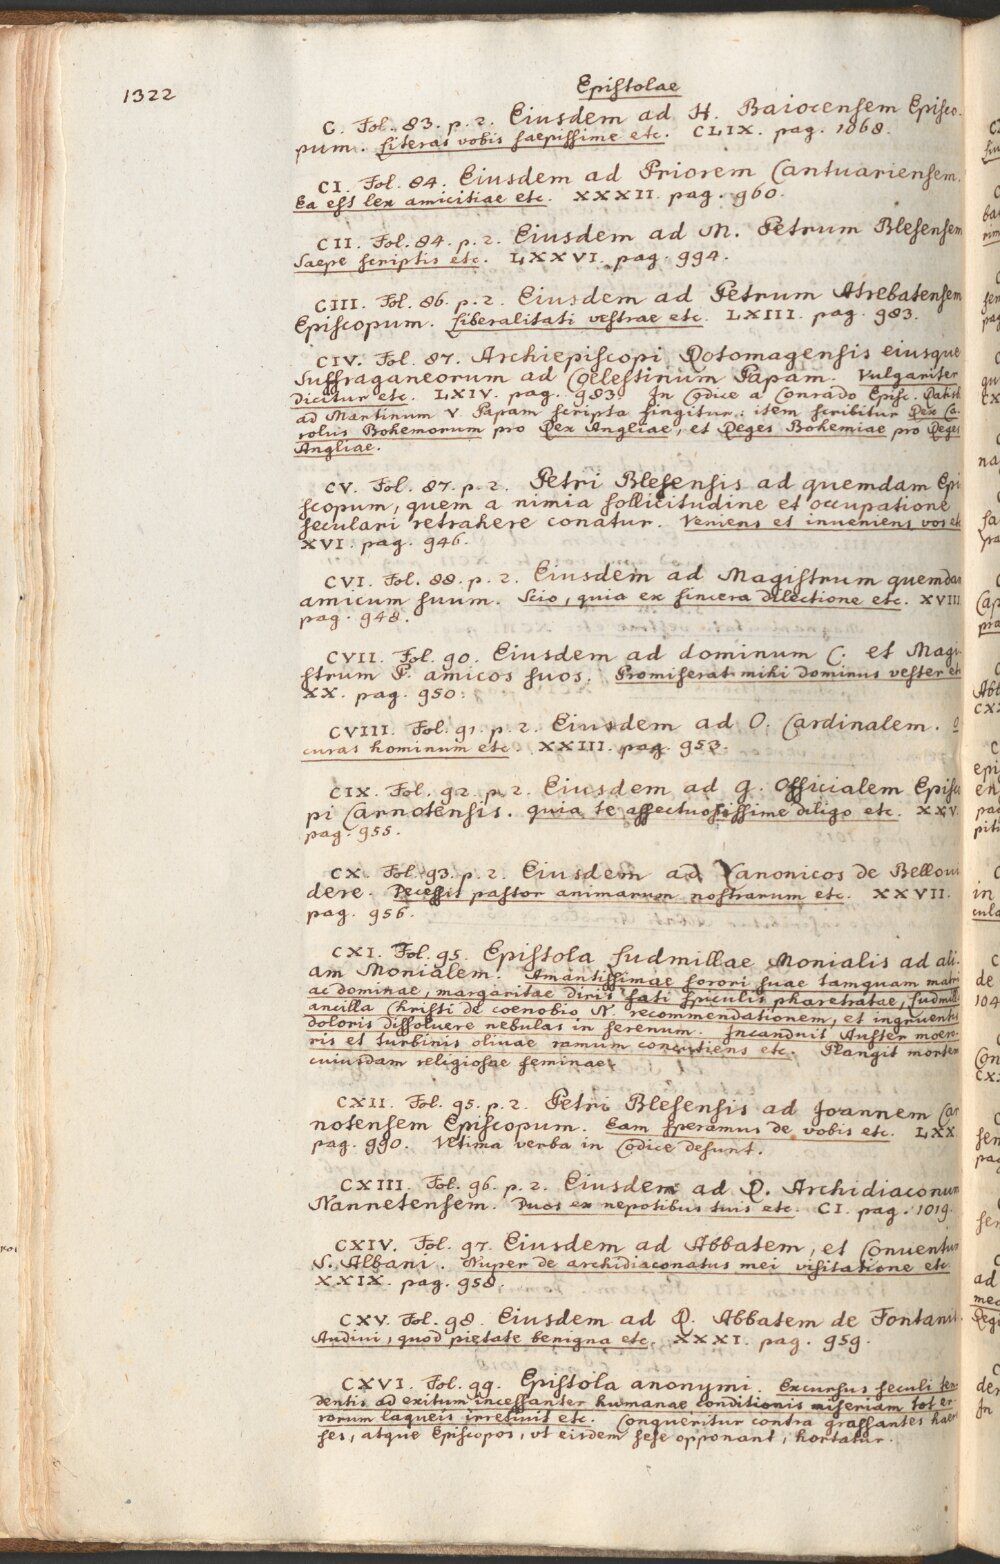 1322
Epistolae
C. Fol. 83. p. 2. Eiusdem ad H. Baiocensem Episco-
pum. Literas vobis saepissime etc. CLIX. pag. 1068.
CI. Fol. 84. Eiusdem ad Priorem Cantuariensem.
Ea est lex amicitiae etc. XXXII. pag. 960.
CII. Fol. 84. p. 2. Eiusdem ad M. Petrum Blesensem
Saepe scriptis etc. LXXVI. pag. 994.
CIII. Fol. 86. p. 2. Eiusdem ad Petrum Atrebatensem
Episcopum. Liberalitati vestrae etc. LXIII. pag. 983.
CIV. Fol. 87. Archiepiscopi Rotomagensis eiusque
Suffraganeorum ad Coelestinum Papam. Vulgariter
dicitur etc. LXIV. pag. 983. In Codice a Conrado Episc. Ratisb
ad Martinum V. Papam scripta fingitur: item scribitur Rex Ca-
rolus Bohemorum pro Rex Angliae, et Reges Bohemiae pro Reges
Angliae.
CV. Fol. 87. p. 2. Petri Blesensis ad quemdam Epi
scopum, quem a nimia sollicitudine et occupatione
seculari retrahere conatur. Veniens et inveniens vos etc
XVI. pag. 946.
CVI. Fol. 88. p. 2. Eiusdem ad Magistrum quemdam
amicum suum. Scio, quia ex sincera dilectione etc. XVIII
pag. 948.
CVII. Fol. 90. Eiusdem ad dominum C. et Magi-
strum P. amicos suos. Promiserat mihi dominus vester etc
XX. pag. 950.
CVIII. Fol. 91. p. 2. Eiusdem ad O. Cardinalem. O
curas hominum etc. XXIII. pag. 953.
CIX. Fol. 92. p. 2. Eiusdem ad G. Officialem Episco
pi Carnotensis. quia te affectuosissime diligo etc. XXV.
pag. 955.
CX. Fol. 93. p. 2. Eiusdem ad Canonicos de Bellovi
dere. Decessit pastor animarum nostrarum etc. XXVII.
pag. 956.
CXI. Fol. 95. Epistola Ludmillae Monialis ad ali-
am Monialem. Amantissimae sorori suae tamquam matri
ac dominae, margaritae diris fati spiculis pharetratae, Ludmilla
ancilla Christi de coenobio N. recommendationem, et ingruentis
doloris dissoluere nebulas in serenum. Incanduit Auster moero-
ris et turbinis olivae ramum concutiens etc. Plangit mortem
cuiusdam religiosae feminae.
CXII. Fol. 95. p. 2. Petri Blesensis ad Joannem Car
notensem Episcopum. Eam speramus de vobis etc. LXX
pag. 990. Vltima verba in Codice desunt.
CXIII. Fol. 96. p. 2. Eiusdem ad R. Archidiaconum
Nannetensem. Duos ex nepotibus tuis etc. CI. pag. 1019.
CXIV. Fol. 97. Eiusdem ad Abbatem, et Conventum
S. Albani. Nuper de archidiaconatus mei visitatione etc
XXIX. pag. 958.
CXV. Fol. 98. Eiusdem ad R. Abbatem de Fontanis.
Audivi, quod pietate benigna etc. XXXI. pag. 959.
CXVI. Fol. 99. Epistola anonymi. Excursus seculi ten-
dentis ad exitum incessanter humanae conditionis miseriam tot er-
rorum laqueis irretivit etc. Conqueritur contra grassantes haere
ses, atque Episcopos, vt eisdem sese opponant, hortatur.